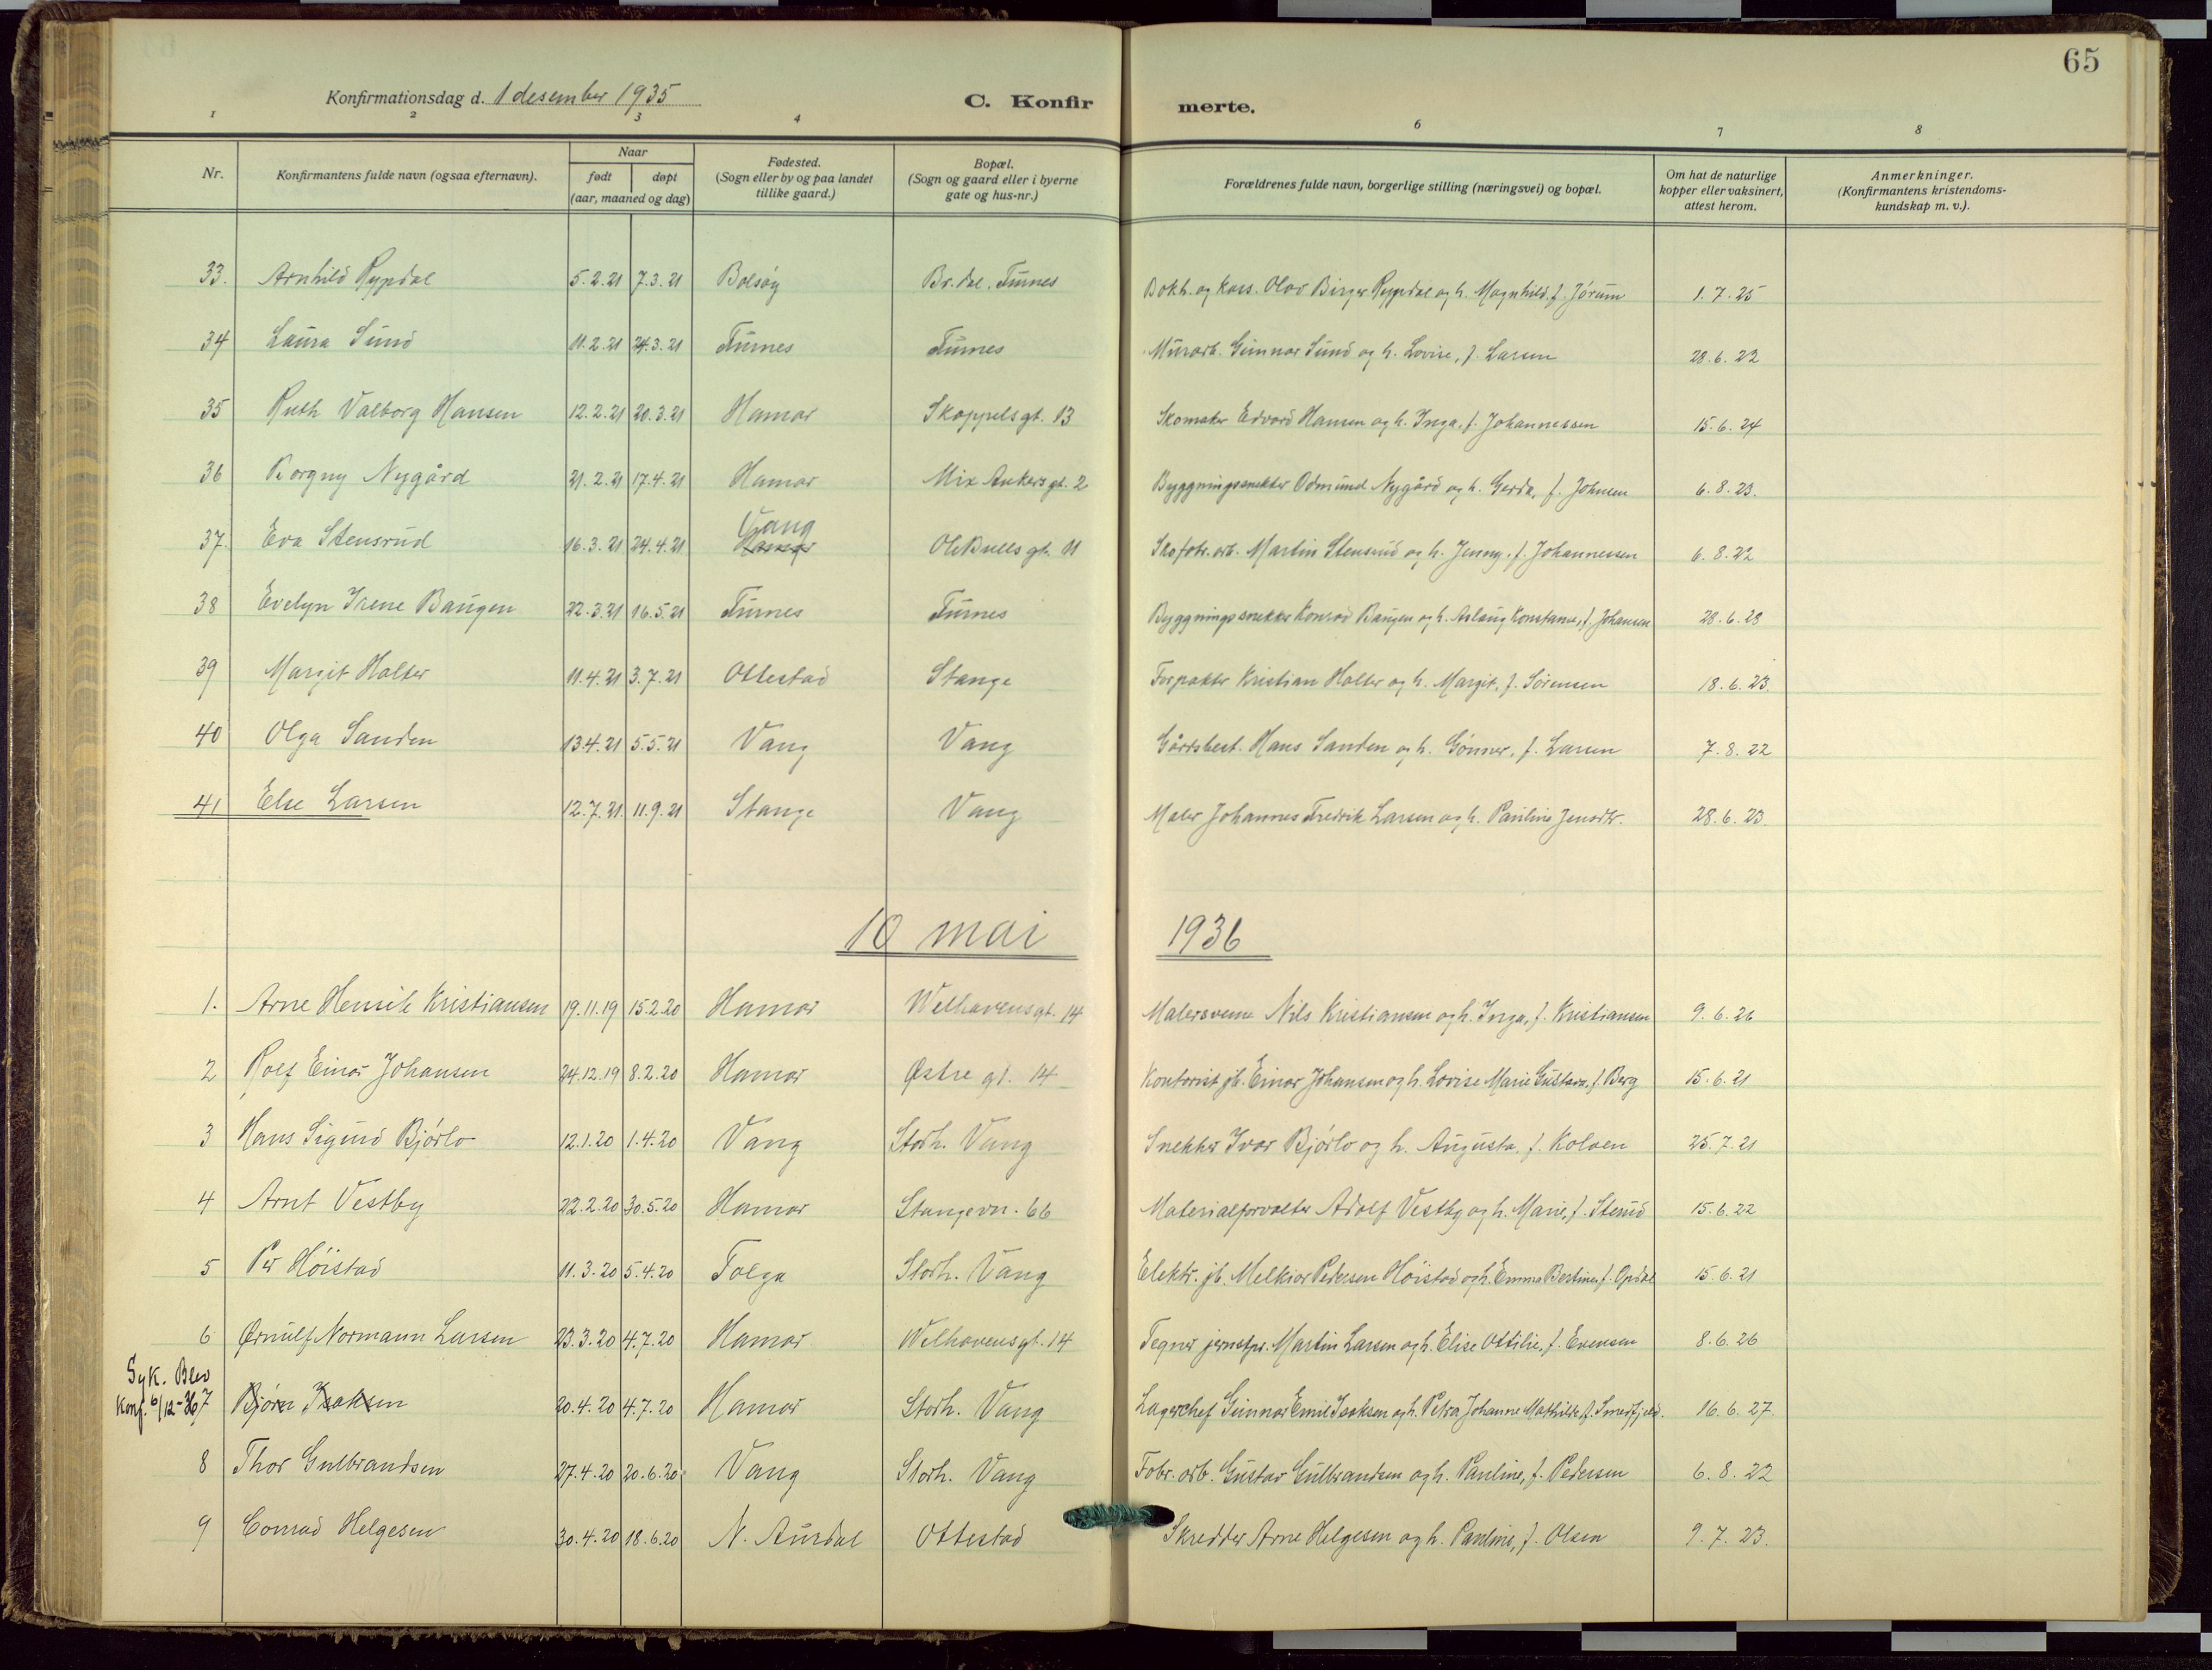 65
Konfirmationsdag d. 1 desember 1935
C. Konfirmerte.
1 2 3 4 6 7 8
Nr.
Konfirmantens fulde navn (ogsaa efternavn).
Naar
født døpt
(aar, maaned og dag)
Fødested.
(Sogn eller by og paa landet
tillike gaard.)
Bopæl.
(Sogn og gaard eller i byerne
gate og hus-nr.)
Forældrenes fulde navn, borgerlige stilling (næringsvei) og bopæl.
Om hat de naturlige
kopper eller vaksinert,
attest herom.
Anmerkninger.
(Konfirmantens kristendoms-
kundskap m. v.).
33. Arnhild Rypdal 5.2.21 7.3.21 Bolsøy Br.dal. Furnes Bokh. og kass. Olav Birger Rypdal og h. Magnhild f. Jørum 1.7.25
34 Laura Sund 11.2.21 24.3.21 Furnes Furnes Murarb. Gunnar Sund og h. Lovise, f. Larsen 28.6.22
35 Ruth Valborg Hansen 12.2.21 20.3.21 Hamar Skappelsgt. 13 Skomaker Edvard Hansen og h. Inga, f. Johannessen 15.6.24
36 Borgny Nygård 21.2.21 17.4.21 Hamar Mix Ankersgt. 2 Bygningssnekker Odmund Nygård og h. Gerda, f. Johnsen 6.8.23.
37. Eva Stensrud 16.3.21 24.4.21 Vang Hamar Ole Bullsgt. 11 Skofabr.arb. Martin Stensrud og h. Jenny, f. Johannessen 6.8.22
38 Evelyn Irene Baugen 22.3.21 16.5.21 Furnes Furnes Bygningssnekker Konrad Baugen og h. Aslaug Konstanse, f. Johansen 28.6.28
39 Margit Halter 11.4.21 3.7.21 Ottestad Stange Forpakter Kristian Halter og h. Margit, f. Sørensen 18.6.23.
40 Olga Sanden 13.4.21 5.5.21 Vang Vang Gårdsbest. Hans Sanden og h. Gunner, f. Larsen 7.8.22
41 Else Larsen 12.7.21 11.9.21 Stange Vang Maler Johannes Fredrik Larsen og h. Pauline Jensdtr. 28.6.23.
10 mai 1936
1. Arne Henrik Kristiansen 19.11.19 15.2.20 Hamar Welhavensgt. 14 Malersvenn Nils Kristiansen og h. Inga, f. Kristiansen 9.6.26
2 Rolf Einar Johansen 24.12.19 8.2.20 Hamar Østre gt. 14 Kontorist jb. Einar Johansen og h. Lovise Marie Gustava, f. Berg 15.6.21
3 Hans Sigurd Bjørlo 12.1.20 1.4.20 Vang Storh. Vang Snekker Ivar Bjørlo og h. Augusta, f. Kolsen 25.7.21
4 Arnt Vestby 22.2.20 30.5.20 Hamar Stangevn. 66 Materialforvalter Adolf Vestby og h. Marie, f. Stenud 15.6.22
5 Per Höistad 11.3.20 5.4.20 Tolga Storh. Vang Elektr. jb. Melkior Pedersen Höistad og h. Emma Bertine, f. Opdal 15.6.21
6 Ørnulf Normann Larsen 23.3.20 4.7.20 Hamar Welhavensgt. 14 Tegner jernstøp. Martin Larsen og h. Elise Ottilie, f. Evensen 8.6.26
Syk. Blev
konf. 6/12-36 7 Bjørn Isaksen 20.4.20 4.7.20 Hamar Storh. Vang Lagerchef Gunnar Emil Isaksen og h. Petra Johanne Mathilde f. Smedfjeld. 16.6.27
8 Thor Gulbrandsen 27.4.20 20.6.20 Vang Storh. Vang Fabr. arb. Gustav Gulbrandsen og h. Pauline, f. Pedersen 6.8.22
9 Conrad Helgesen 30.4.20 18.6.20 N. Aurdal Ottestad Skredder Arne Helgesen og h. Pauline, f. Olsen 9.7.23.